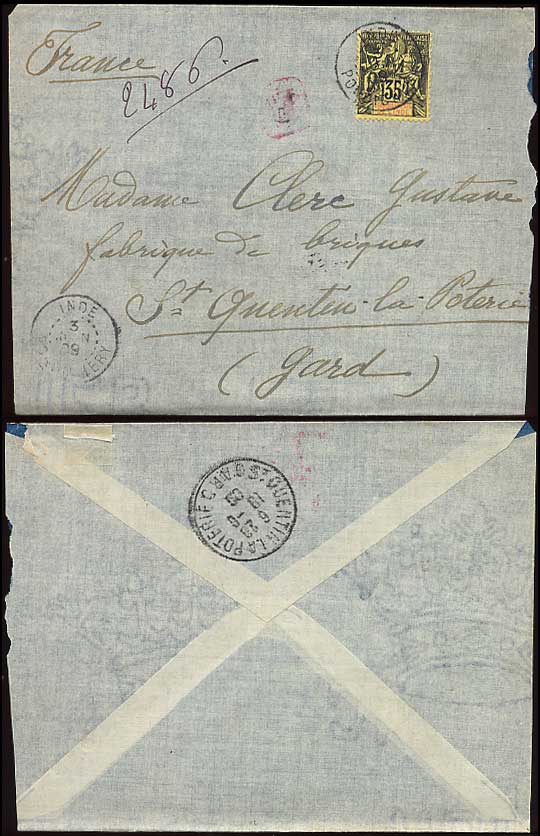 France
2486.
35
R
Madame Clerc Gustave
fabrique de briques
St Quentin-la-Poterie
(Gard)
INDE
3
09
ST QUENTIN-LA-POTERIE GARD
09